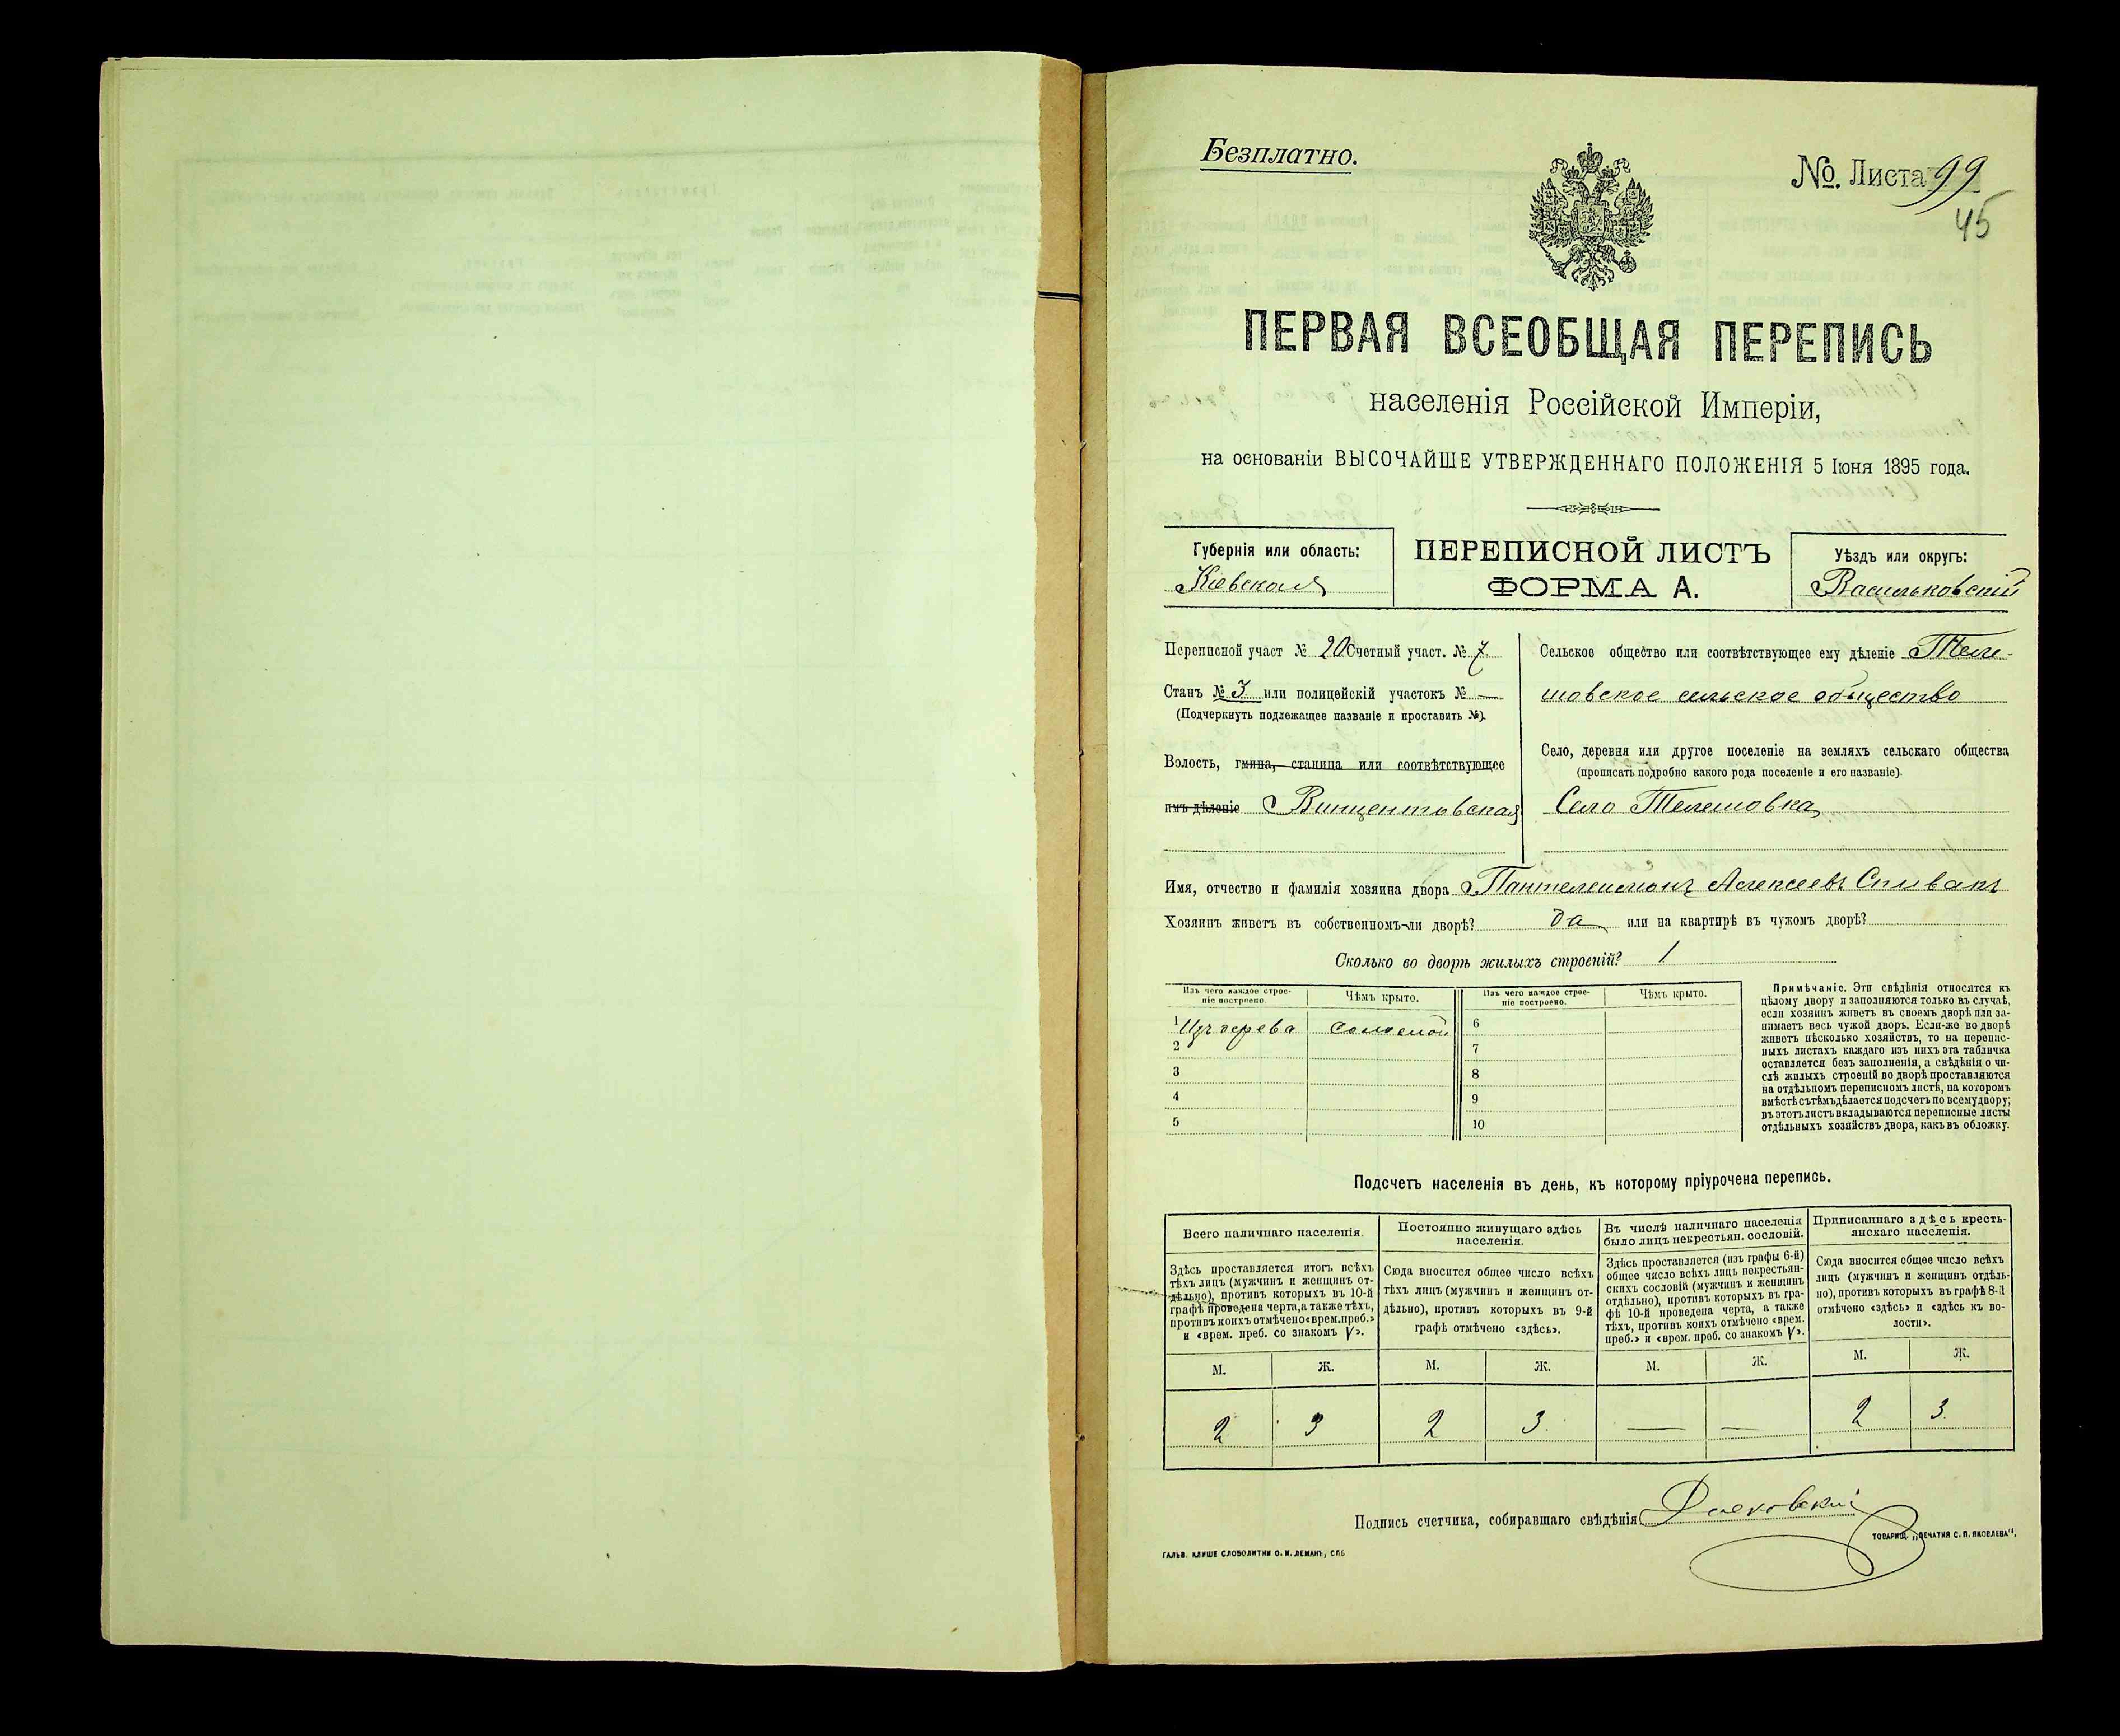 Безплатно.
№. Листа 99
45
ПЕРВАЯ ВСЕОБЩАЯ ПЕРЕПИСЬ
населенія Россійской Имперіи,
на основаніи ВЫСОЧАЙШЕ УТВЕРЖДЕННАГО ПОЛОЖЕНІЯ 5 Іюня 1895 года.
Губернія или область:
Кіевская
ПЕРЕПИСНОЙ ЛИСТЪ
ФОРМА А.
Уѣздъ или округъ:
Васильковскій
Переписной участ № 20 Счетный участ. № 7
Станъ № 3 или полицейскій участокъ № —
(Подчеркнуть подлежащее названіе и проставить №).
Волость, гмина, станица или соотвѣтствующее
имъ дѣленіе Винцентовская
Сельское общество или соотвѣтствующее ему дѣленіе Теле-
шовское сельское общество
Село, деревня или другое поселеніе на земляхъ сельскаго общества
(прописать подробно какого рода поселеніе и его названіе).
Село Телешовка
Имя, отчество и фамилія хозяина двора Пантелеимонъ Алексеевъ Спивакъ
Хозяинъ живетъ въ собственномъ-ли дворѣ? да или на квартирѣ въ чужомъ дворѣ?
Сколько во дворѣ жилыхъ строеній? 1
Изъ чего каждое строе-
ніе построено.
Чѣмъ крыто.
Изъ чего каждое строе-
ніе построено.
Чѣмъ крыто.
1 Изъ дерева соломой 6
2 7
3 8
4 9
5 10
Примѣчаніе. Эти свѣдѣнія относятся къ
цѣлому двору и заполняются только въ случаѣ,
если хозяинъ живетъ въ своемъ дворѣ или за-
нимаетъ весь чужой дворъ. Если-же во дворѣ
живетъ нѣсколько хозяйствъ, то на перепис-
ныхъ листахъ каждаго изъ нихъ эта табличка
оставляется безъ заполненія, а свѣдѣнія о чи-
слѣ жилыхъ строеній во дворѣ проставляются
на отдѣльномъ переписномъ листѣ, на которомъ
вмѣстѣ съ тѣмъ дѣлается подсчетъ по всему двору;
въ этотъ листъ вкладываются переписные листы
отдѣльныхъ хозяйствъ двора, какъ въ обложку.
Подсчетъ населенія въ день, къ которому пріурочена перепись.
Всего наличнаго населенія.
Здѣсь проставляется итогъ всѣхъ
тѣхъ лицъ (мужчинъ и женщинъ от-
дѣльно), противъ которыхъ въ 10-й
графѣ проведена черта, а также тѣхъ,
противъ коихъ отмѣчено «врем. преб.»
и «врем. преб. со знакомъ V».
Постоянно живущаго здѣсь
населенія.
Сюда вносится общее число всѣхъ
тѣхъ лицъ (мужчинъ и женщинъ от-
дѣльно), противъ которыхъ въ 9-й
графѣ отмѣчено «здѣсь».
Въ числѣ наличнаго населенія
было лицъ некрестьян. сословій.
Здѣсь проставляется (изъ графы 6-й)
общее число всѣхъ лицъ некрестьян-
скихъ сословій (мужчинъ и женщинъ
отдѣльно), противъ которыхъ въ гра-
фѣ 10-й проведена черта, а также
тѣхъ, противъ коихъ отмѣчено «врем.
преб.» и «врем. преб. со знакомъ V».
Приписаннаго здѣсь кресть-
янскаго населенія.
Сюда вносится общее число всѣхъ
лицъ (мужчинъ и женщинъ отдѣль-
но), противъ которыхъ въ графѣ 8-й
отмѣчено «здѣсь» и «здѣсь къ во-
лости».
М. Ж. М. Ж. М. Ж. М. Ж.
2 3 2 3. — — 2 3.
Подпись счетчика, собиравшаго свѣдѣнія
ГАЛЬВ. КЛИШЕ СЛОВОЛИТНИ О. И. ЛЕМАНЪ, СПБ
ТОВАРИЩ. „ПЕЧАТНЯ С. П. ЯКОВЛЕВА“.